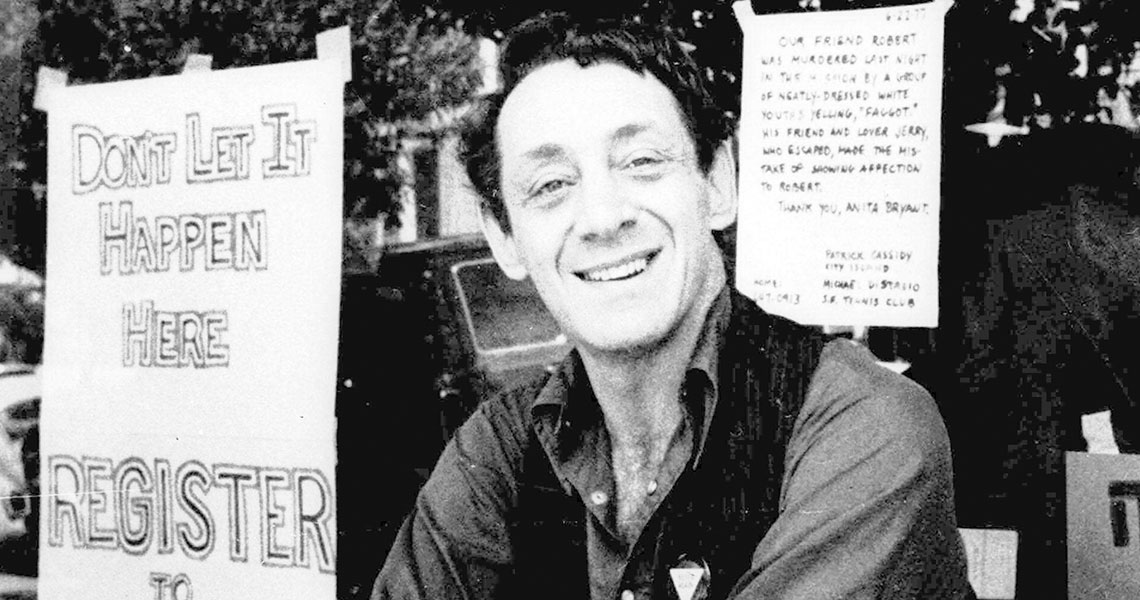 DON'T LET IT
HAPPEN
HERE
REGISTER
TO
6-22-77
OUR FRIEND ROBERT
WAS MURDERED LAST NIGHT
IN THE MISSION BY A GROUP
OF NEATLY-DRESSED WHITE
YOUTHS YELLING, "FAGGOT."
HIS FRIEND AND LOVER JERRY,
WHO ESCAPED, MADE THE MIS-
TAKE OF SHOWING AFFECTION
TO ROBERT.
THANK YOU, ANITA BRYANT.
PATRICK CASSIDY
MICHAEL DISTASIO
S.F. TENNIS CLUB